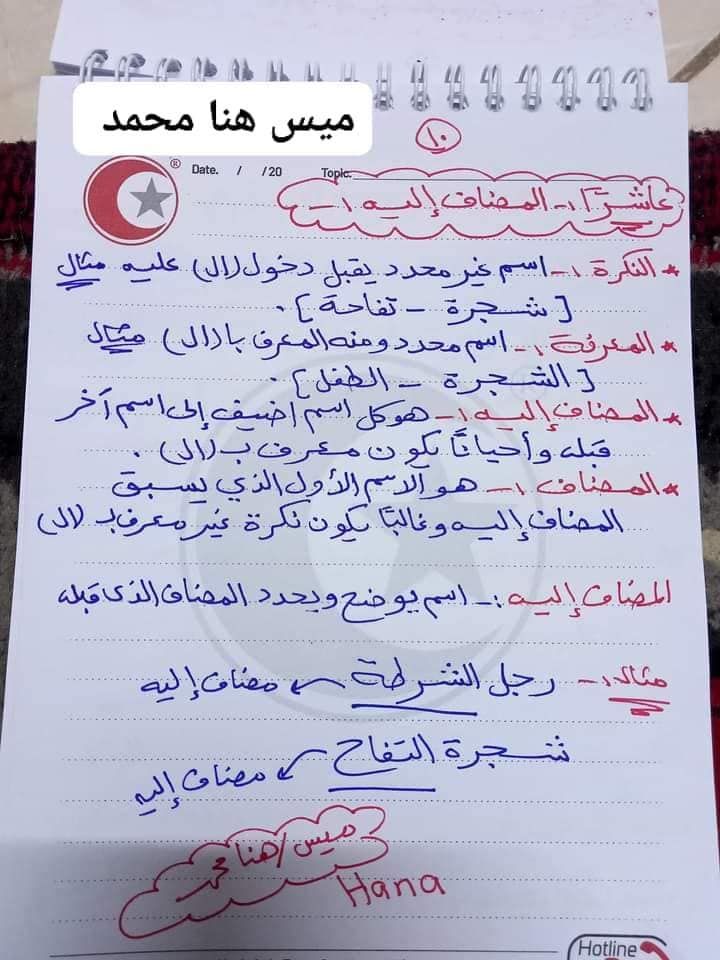 ميس هنا محمد
١٠
® Date. / /20 Topic.
عاشرًا :- المضاف إليه :-
* النكرة :- اسم غير محدد يقبل دخول (ال) عليه مثال
[ شجرة - تفاحة ] .
* المعرفة :- اسم محدد ومنه المعرف بـ (ال) مثال
[ الشجرة - الطفل ] .
* المضاف إليه :- هو كل اسم اضيف إلى اسم آخر
قبله وأحيانًا يكون معرف ب (ال) .
* المضاف :- هو الاسم الأول الذي يسبق
المضاف إليه وغالبًا يكون نكرة غير معرف بـ (ال)
المضاف إليه :- اسم يوضح ويحدد المضاف الذى قبله
مثال :- رجل الشرطة مضاف إليه
شجرة التفاح مضاف إليه
ميس / هنا محمد
Hana
Hotline